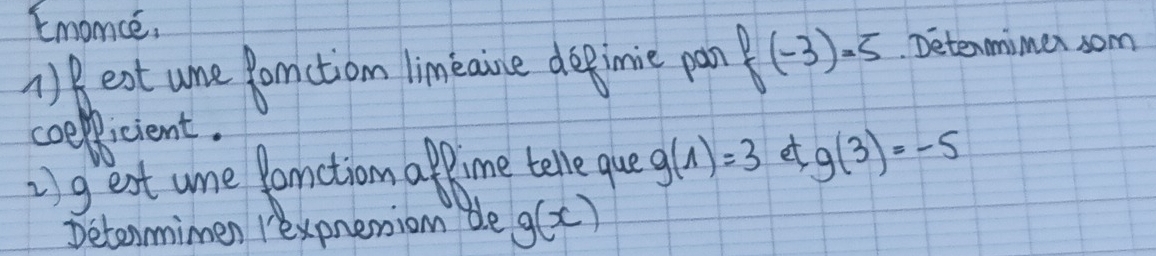 Enoncé.
1) f est une fonction linéaire définie par f(-3)=5. Déterminer son
coefficient.
2) g est une fonction affine telle que g(1)=3 et g(3)=-5
Déterminer l'expression de g(x)